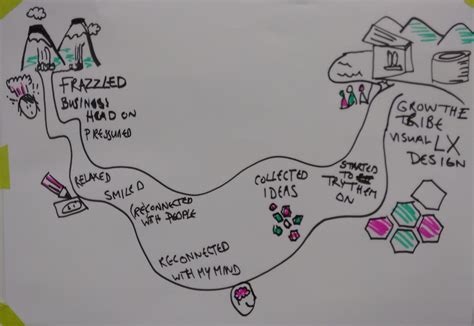 FRAZZLED
BUSINESS
HEAD ON
PRESSURED
RELAXED
SMILED
RECONNECTED
WITH PEOPLE
RECONNECTED
WITH MY MIND
COLLECTED
IDEAS
STARTED
TO
TRY THEM
ON
GROW THE
TRIBE
VISUAL LX
DESIGN